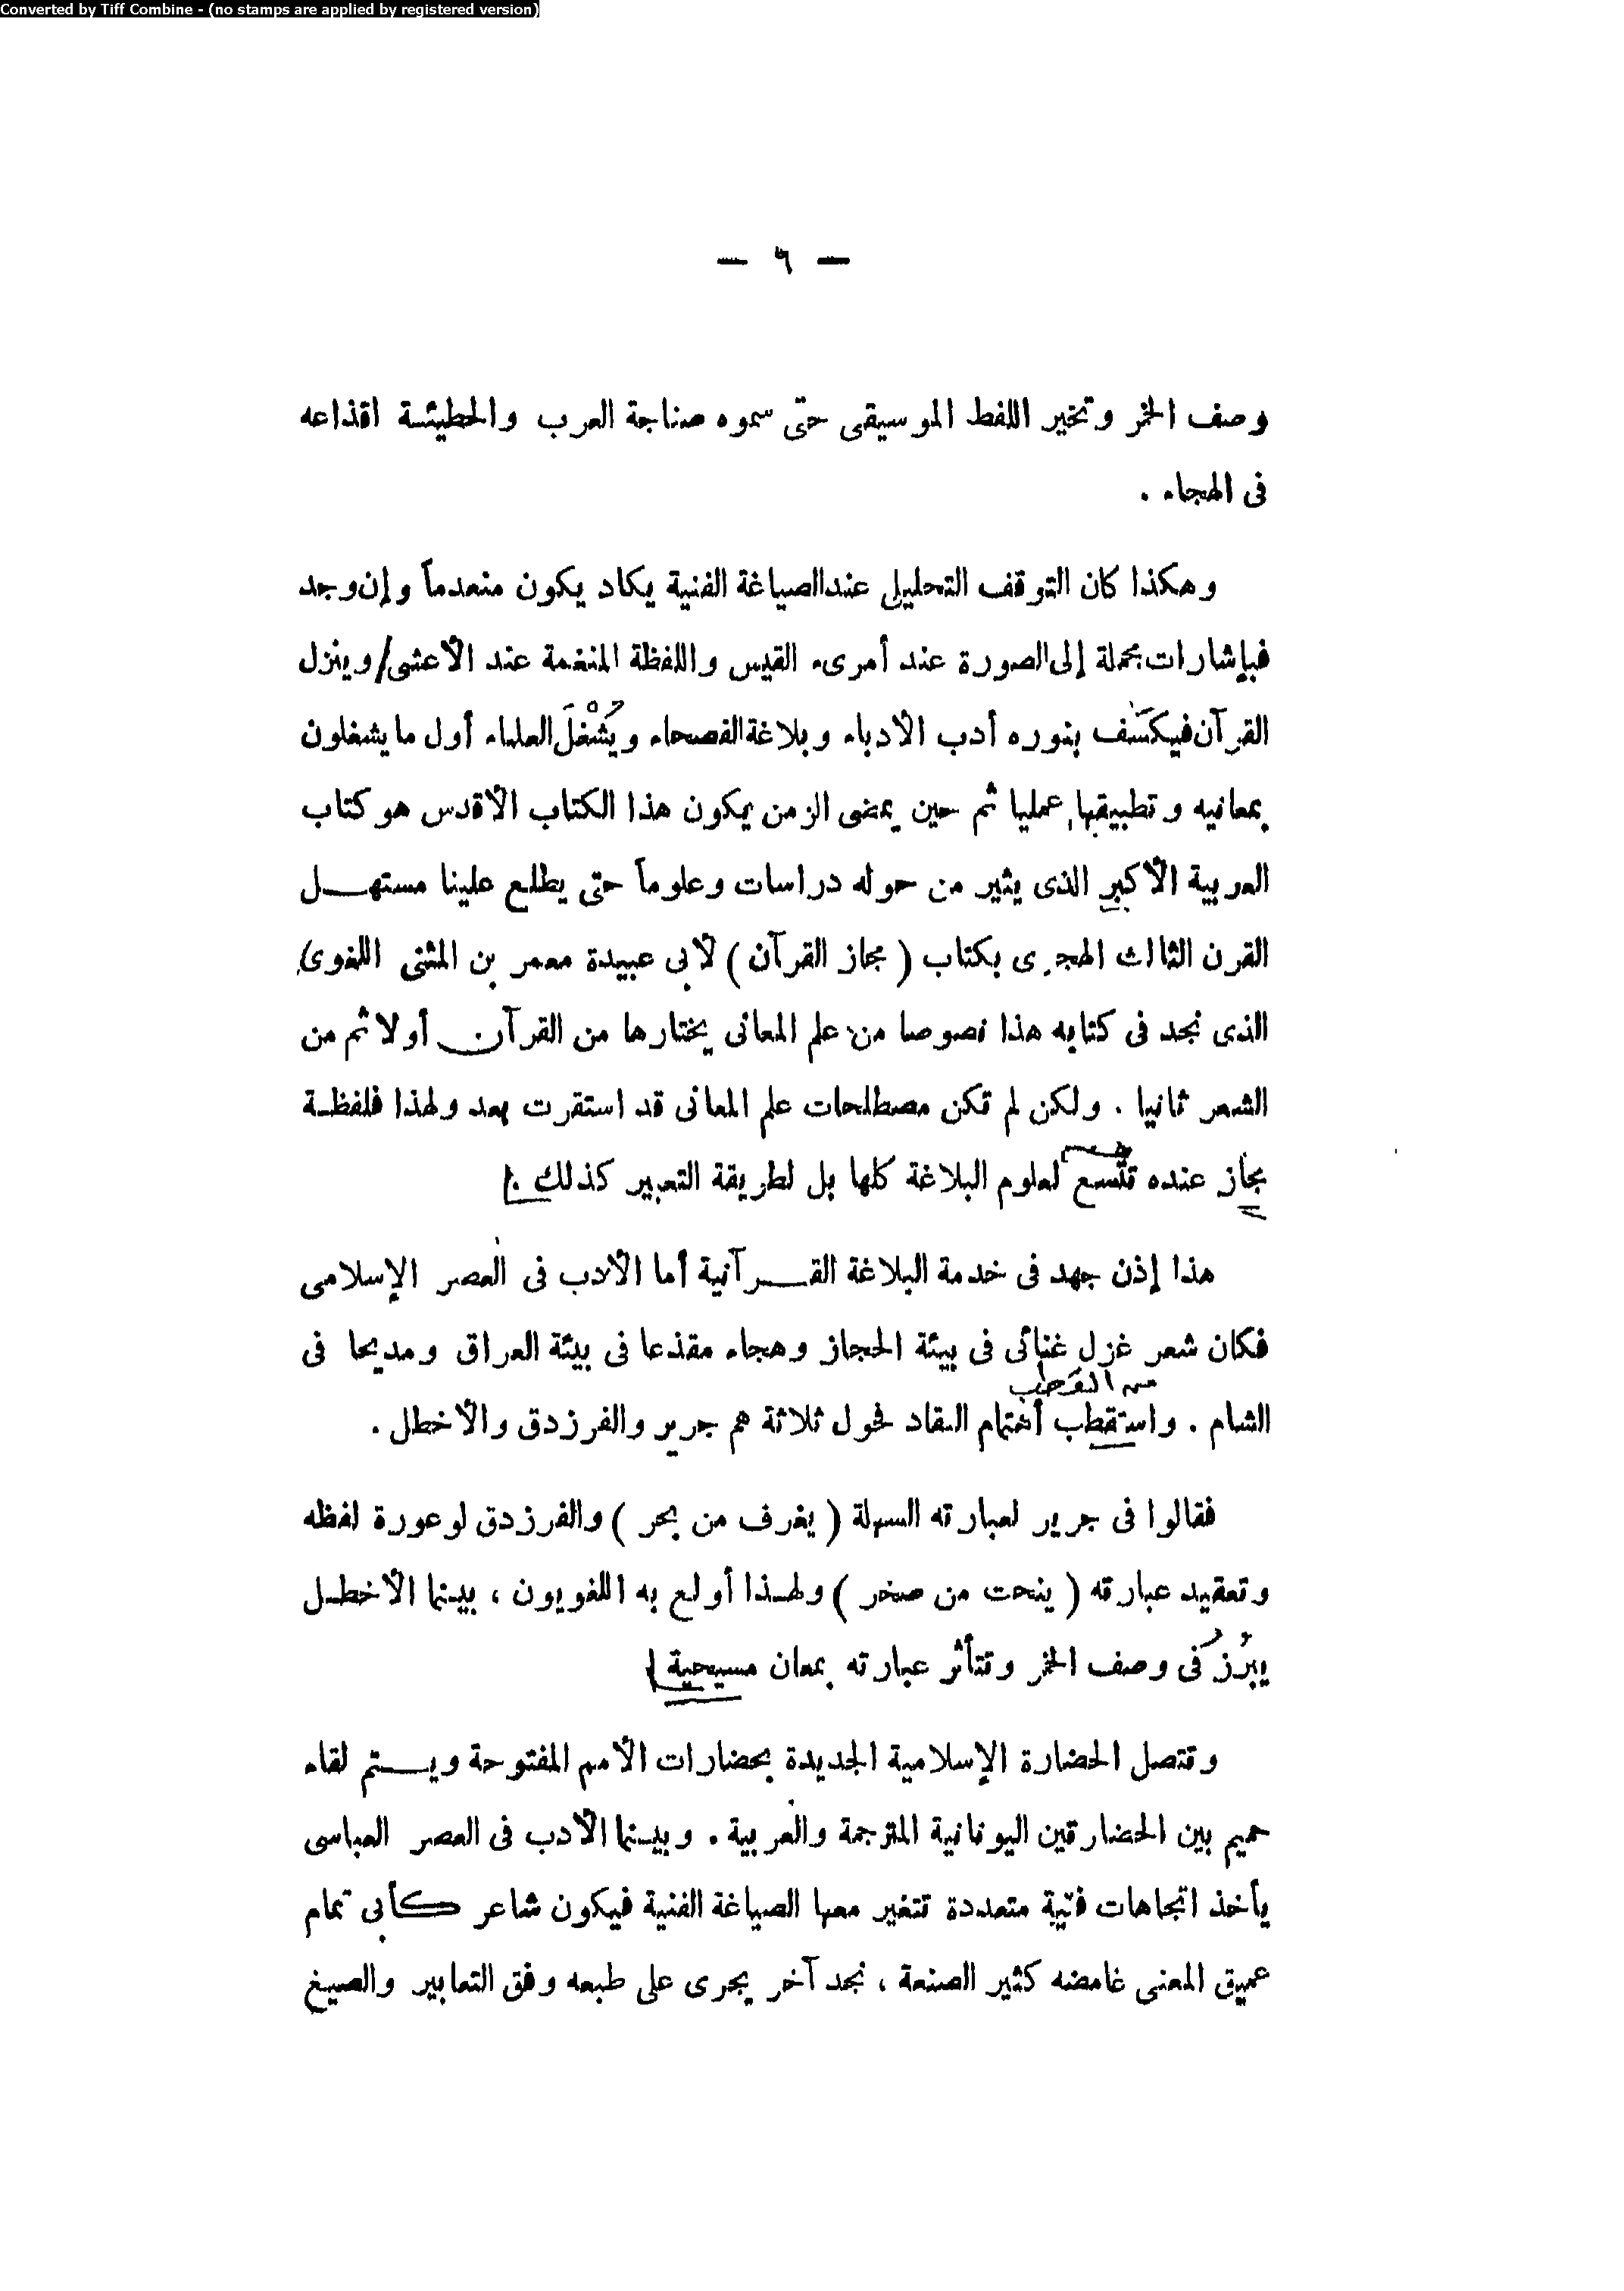 Converted by Tiff Combine - (no stamps are applied by registered version)
— ٦ —
وصف الخمر وتخير اللفظ الموسيقى حتى سموه صناجة العرب والحطيئة اقذاعه
فى الهجاء .
وهكذا كان التوقف التحليلى عند الصياغة الفنية يكاد يكون منعدماً وإن وجد
فبإشارات مجملة إلى الصورة عند أمرىء القيس واللفظة المنغمة عند الأعشى/ وينزل
القرآن فيكسف بنوره أدب الأدباء وبلاغة الفصحاء ويُشْغَلَ العلماء أول ما يشغلون
بمعانيه وتطبيقها عمليا ثم حين يمضى الزمن يكون هذا الكتاب الأقدس هو كتاب
العربية الأكبر الذى يثير من حوله دراسات وعلوماً حتى يطلع علينا مستهـــل
القرن الثالث الهجرى بكتاب ( مجاز القرآن ) لأبى عبيدة معمر بن المثنى اللغوى
الذى نجد فى كتابه هذا نصوصا من علم المعانى يختارها من القرآن أولا ثم من
الشعر ثانيا . ولكن لم تكن مصطلحات علم المعانى قد استقرت بعد ولهذا فلفظـة
مجاز عنده تتسع لعلوم البلاغة كلها بل لطريقة التعبير كذلك .
هذا إذن جهد فى خدمة البلاغة القـــرآنية أما الأدب فى العصر الإسلامى
فكان شعر غزل غنائى فى بيئة الحجاز وهجاء مقذعا فى بيئة العراق ومديحا فى
من القطب
الشام . واستقطب أهتمام النقاد فحول ثلاثة هم جرير والفرزدق والأخطل .
فقالوا فى جرير لعبارته السهلة ( يغرف من بحر ) والفرزدق لوعورة لفظه
وتعقيد عبارته ( ينحت من صخر ) ولهـذا أولع به اللغويون ، بينما الأخطـل
يبرُز فى وصف الخمر وتتأثر عبارته بمعان مسيحية
وتتصل الحضارة الإسلامية الجديدة بحضارات الأمم المفتوحة ويـــتم لقاء
حميم بين الحضارتين اليونانية المترجمة والعربية . وبينما الأدب فى العصر العباسى
يأخذ اتجاهات فنية متعددة تتغير معها الصياغة الفنية فيكون شاعر كأبى تمام
عميق المعنى غامضه كثير الصنعة ، نجد آخر يجرى على طبعه وفق التعابير والصيغ